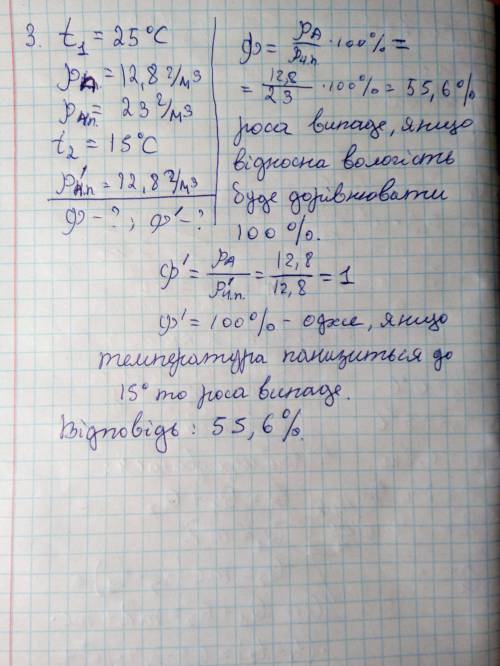 3. t₁ = 25°C
ρA = 12,8 г/м³
ρн.п. = 23 г/м³
t₂ = 15°C
ρ'н.п. = 12,8 г/м³
φ - ? ; φ' - ?
φ = ρA/ρн.п. · 100% =
= 12,8/23 · 100% = 55,6%
роса випаде, якщо
відносна вологість
буде дорівнювати
100%.
φ' = ρA/ρ'н.п. = 12,8/12,8 = 1
φ' = 100% - отже, якщо
температура понизиться до
15° то роса випаде.
Відповідь: 55,6%.